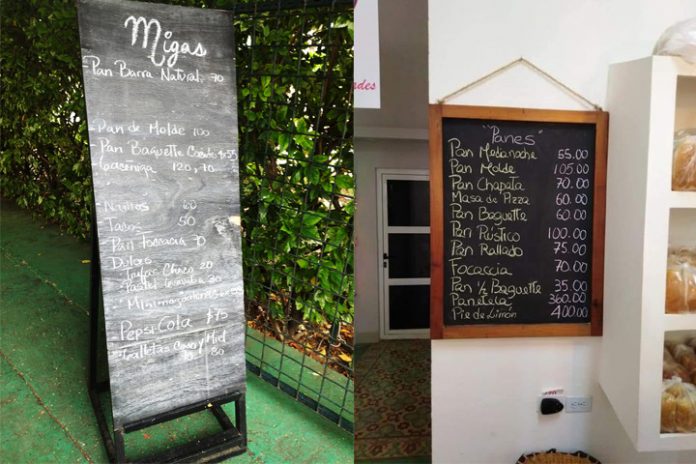 Migas
- Pan Barra Natural. 70
- Pan de Molde 100
- Pan Baguette $55
120, 70
60
- Tacos 50
Pan Focacia 70
Dulces
20
Pepsi Cola $75
- Galletas y Miel
70 80
des
"Panes"
Pan Medianoche 65.00
Pan Molde 105.00
Pan Chapata 70.00
Masa de Pizza 60.00
Pan Baguette 60.00
Pan Rústico 100.00
Pan Rallado 75.00
Focaccia 70.00
Pan ½ Baguette 35.00
Panetela 360.00
Pie de Limón 400.00